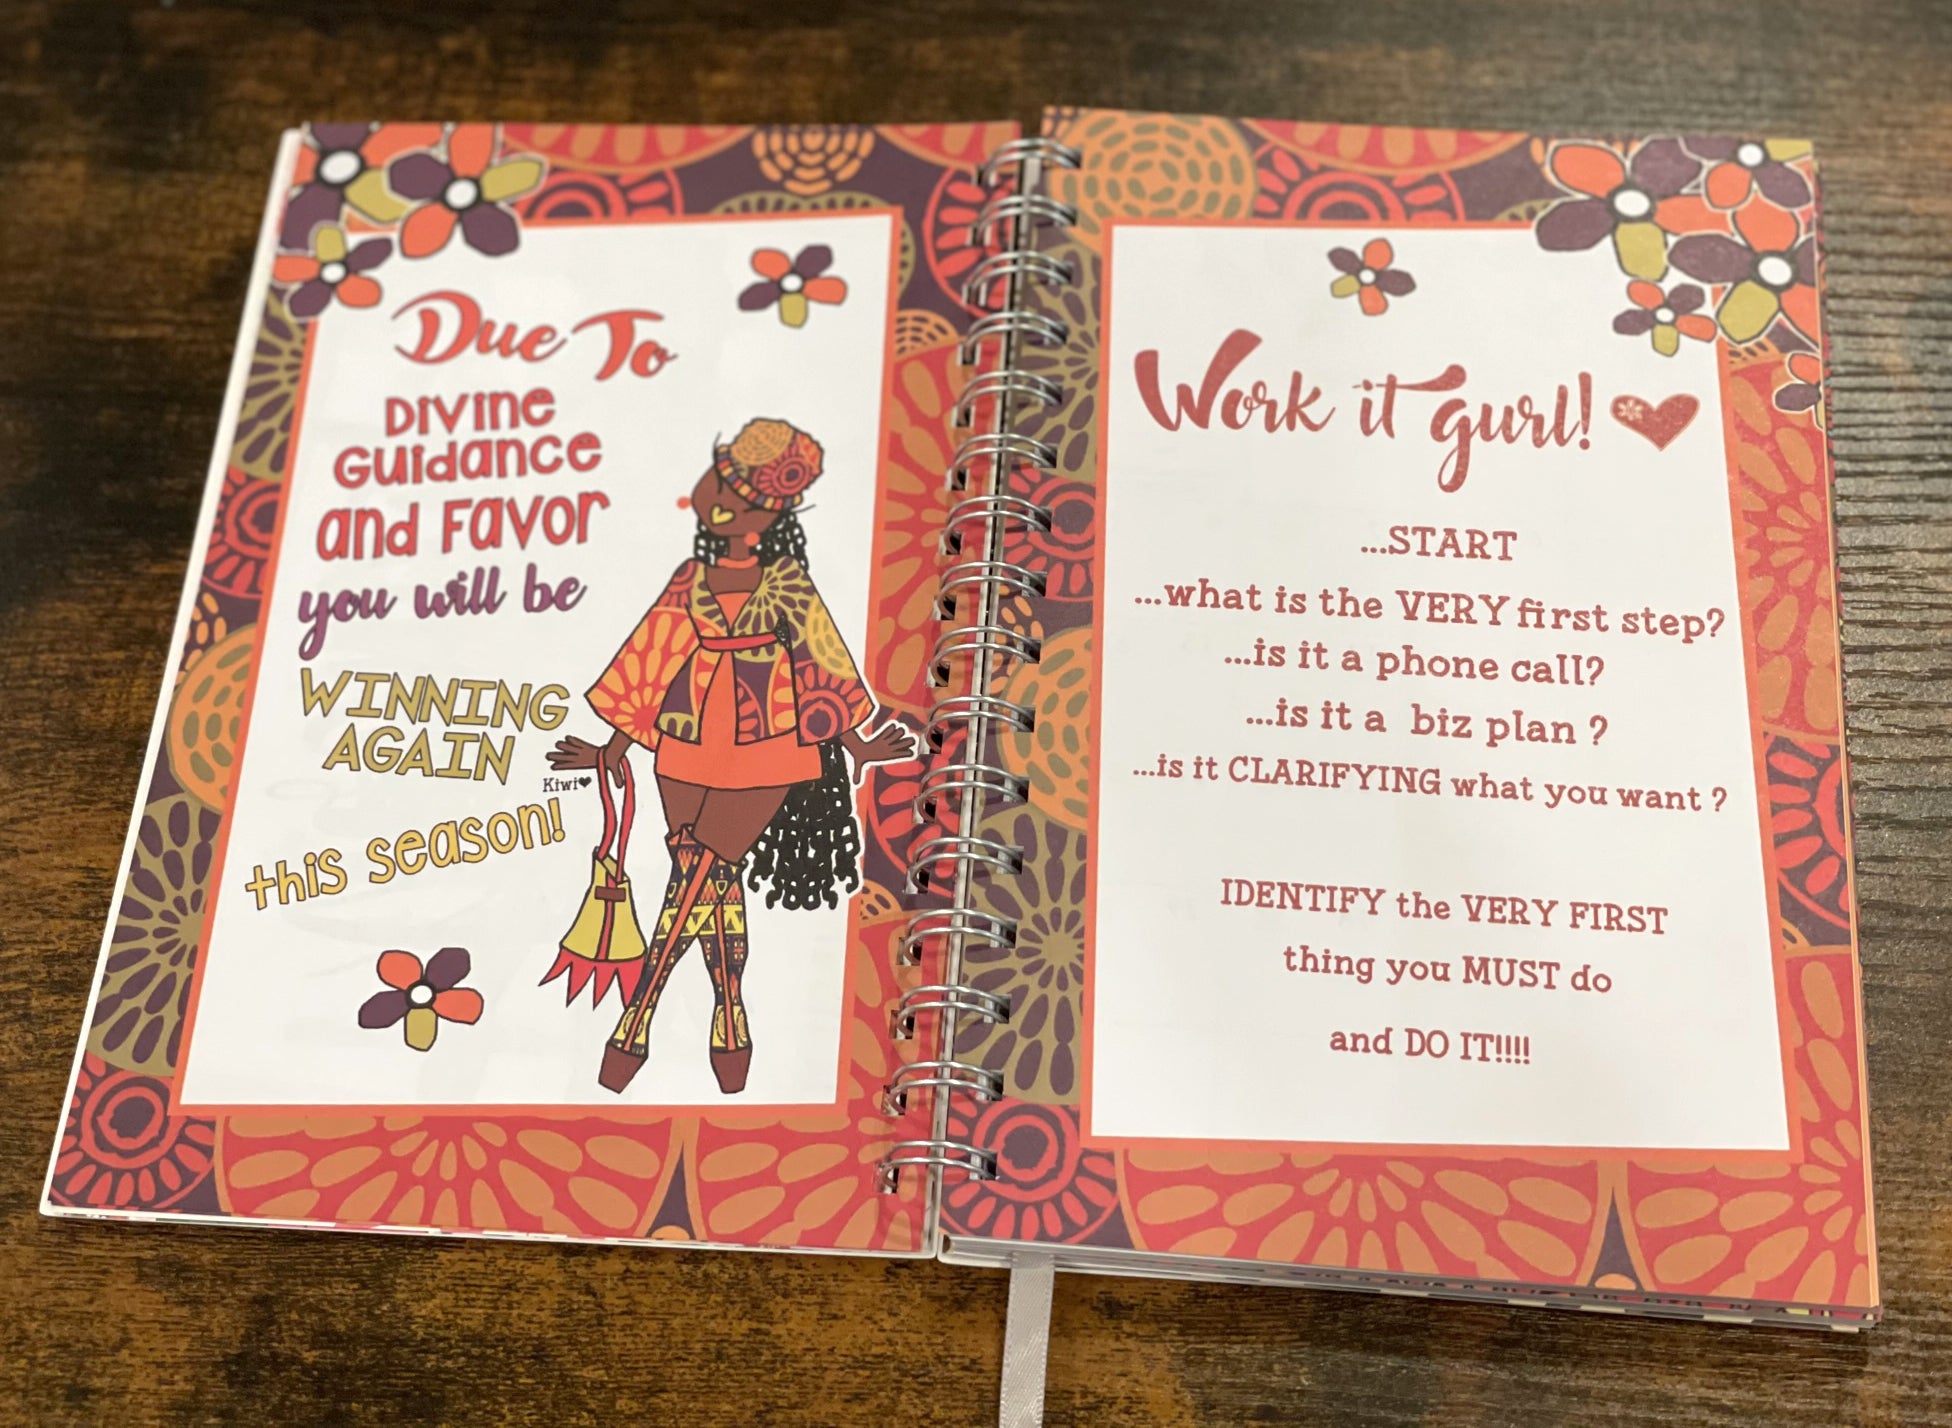 Due To
Divine
Guidance
and Favor
you will be
WINNING
AGAIN
Kiwi
this season!
Work it gurl!
...START
...what is the VERY first step?
...is it a phone call?
...is it a biz plan ?
...is it CLARIFYING what you want ?
IDENTIFY the VERY FIRST
thing you MUST do
and DO IT!!!!